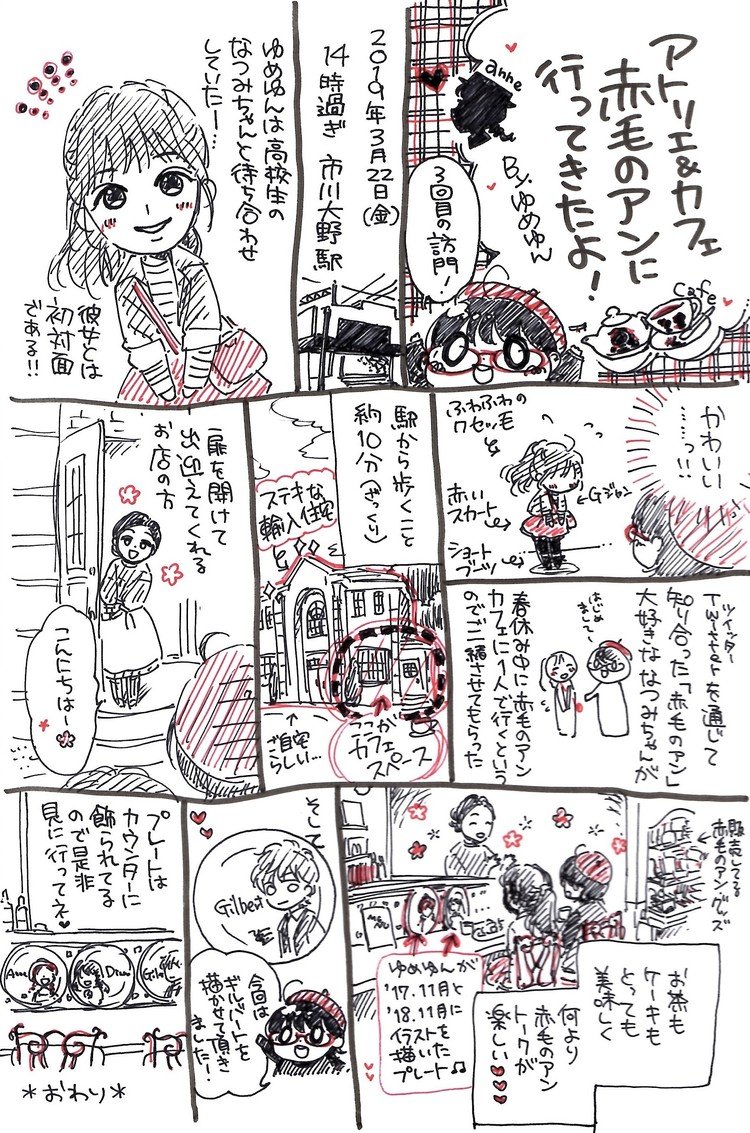 アトリエ&カフェ
赤毛のアンに
行ってきたよ!
anne
By.ゆめゆん
3回目の訪門!
Cafe
2019年3月22日(金)
14時過ぎ 市川大野駅
ゆめゆんは高校生の
なつみちゃんと待ち合わせ
していた…
彼女とは
初対面
である!!
かわいい
……っ!!
ふわふわの
クセッ毛
Gジャン
赤い
スカート
ショート
ブーツ
ツイッター
Twitterを通じて
知り合った「赤毛のアン」
大好きななつみちゃんが
はじめ
まして〜
春休み中に赤毛のアン
カフェに1人で行くという
のでご一緒させてもらった
駅から歩くこと
約10分(ざっくり)
ステキな
輸入住宅
ここが
カフェ
スペース
ご自宅
らしい…
扉を開けて
出迎えてくれる
お店の方
こんにちはー
販売してる
赤毛のアングッズ
MENU
お茶も
ケーキも
とっても
美味しく
何より
赤毛のアン
トークが
楽しい♥♥♥
ゆめゆんが
'17.11月と
'18.11月に
イラストを
描いた
プレート♫
そして
Gilbert
今回は
ギルバートを
描かせて頂き
ました!
プレートは
カウンターに
飾られてる
ので是非
見に行ってネ♥
Anne
Diana
Gil
*おわり*